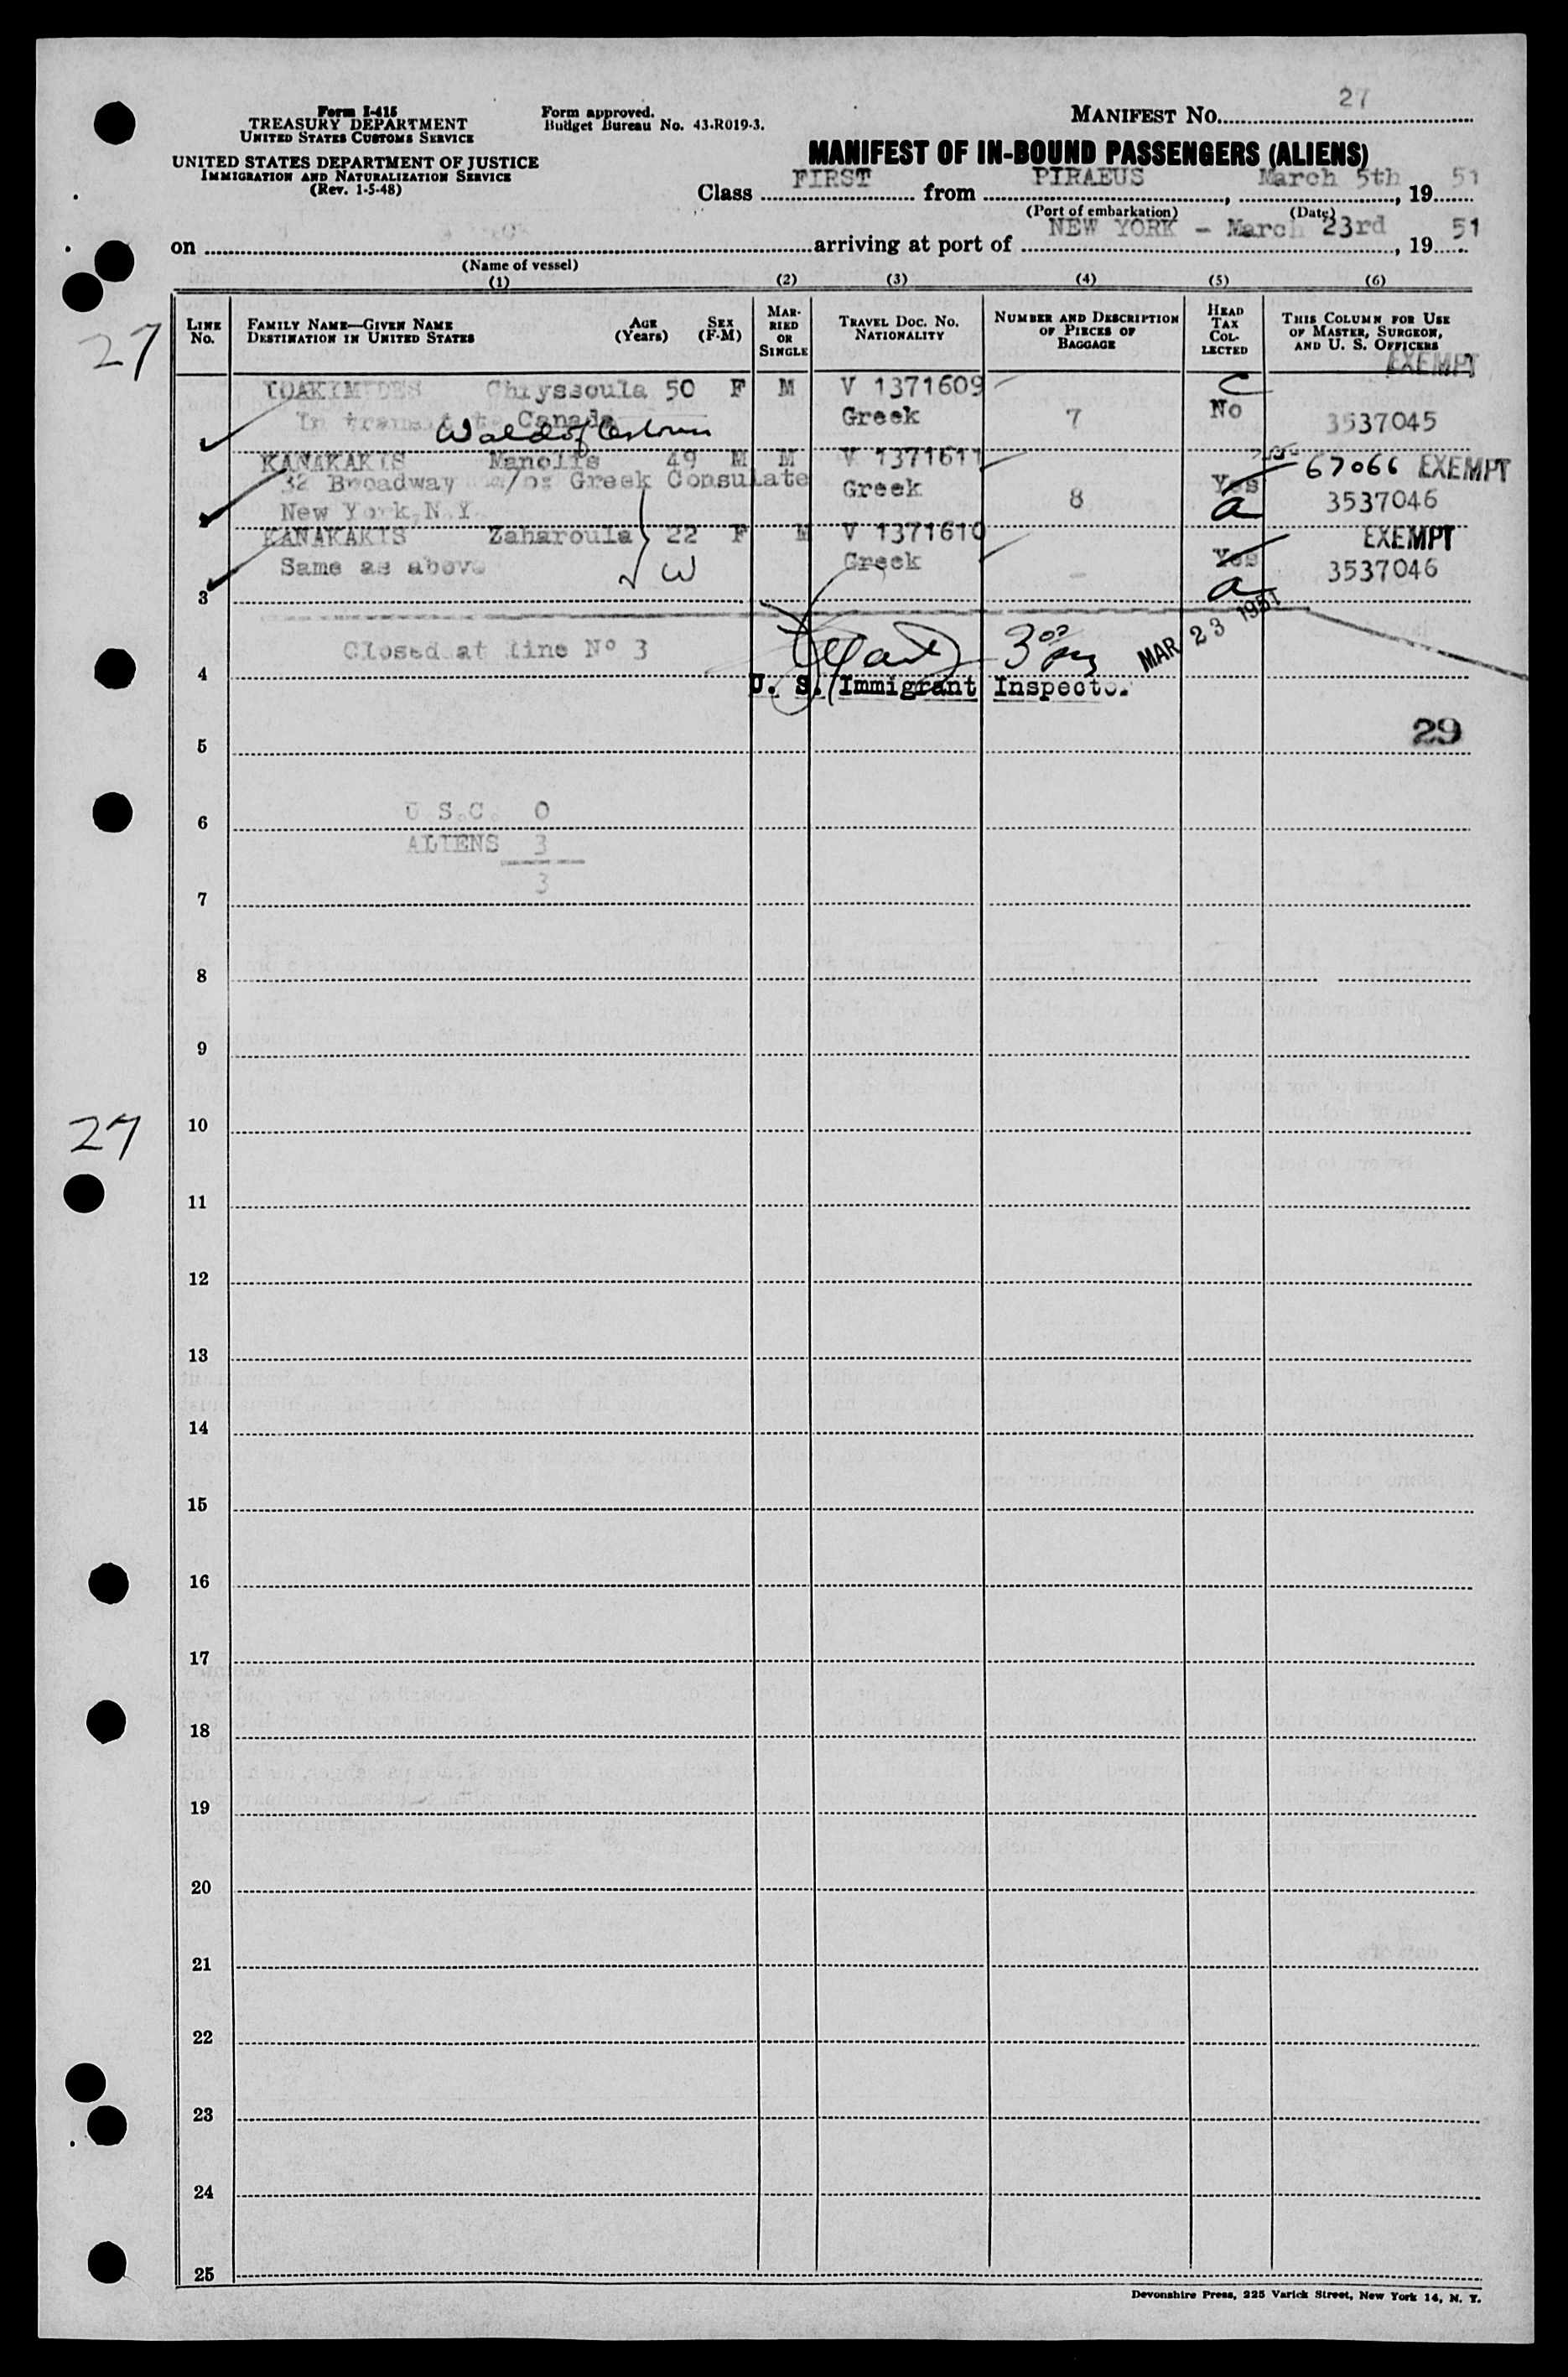 Form I-415
TREASURY DEPARTMENT
UNITED STATES CUSTOMS SERVICE
UNITED STATES DEPARTMENT OF JUSTICE
IMMIGRATION AND NATURALIZATION SERVICE
(Rev. 1-5-48)
Form approved.
Budget Bureau No. 43-R019-3.
MANIFEST No. 27
MANIFEST OF IN-BOUND PASSENGERS (ALIENS)
Class FIRST from PIRAEUS, March 5th, 19 51
(Port of embarkation) (Date)
on arriving at port of NEW YORK - March 23rd, 19 51
(Name of vessel)
(1) (2) (3) (4) (5) (6)
LINE No.
FAMILY NAME—GIVEN NAME
DESTINATION IN UNITED STATES
AGE (Years)
SEX (F-M)
MARRIED OR SINGLE
TRAVEL DOC. No. NATIONALITY
NUMBER AND DESCRIPTION OF PIECES OF BAGGAGE
HEAD TAX COLLECTED
THIS COLUMN FOR USE OF MASTER, SURGEON, AND U. S. OFFICERS
27
EXEMPT
IOAKIMIDES Chryssoula 50 F M V 1371609 C
In transit to Canada Greek 7 No 3537045
KANAKAKIS Manolis 49 M M V 1371611 67066 EXEMPT
32 Broadway c/o: Greek Consulate Greek 8 Yes 3537046
New York, N.Y. a
KANAKAKIS Zaharoula 22 F M V 1371610 EXEMPT
Same as above W Greek - Yes 3537046
3 a
Closed at line No 3 3 00 pm MAR 23 1951
4
U. S. Immigrant Inspector
29
5
U.S.C. 0
6
ALIENS 3
3
7
8
9
27
10
11
12
13
14
15
16
17
18
19
20
21
22
23
24
25
Devonshire Press, 225 Varick Street, New York 14, N. Y.